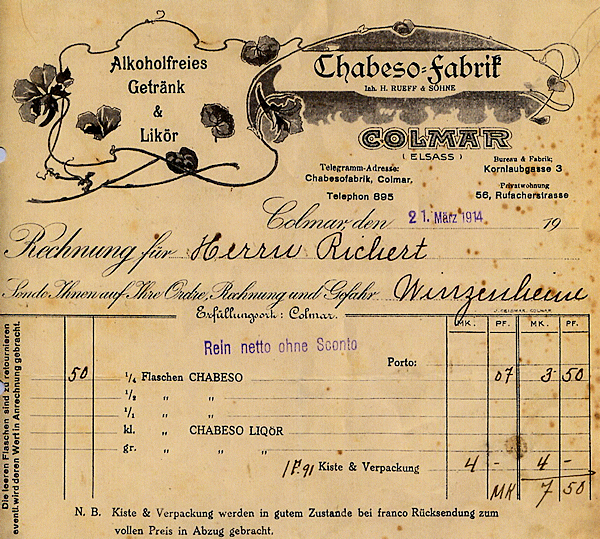 Alkoholfreies
Getränk
&
Likör
Chabeso-Fabrik
Inh. H. RUEFF & SÖHNE
COLMAR
( ELSASS )
Telegramm-Adresse:
Chabesofabrik, Colmar.
Telephon 895
Bureau & Fabrik;
Kornlaubgasse 3
Privatwohnung
56, Rufacherstrasse
Colmar, den 21. März 1914 19
Rechnung für Herrn Richert
Sende Ihnen auf Ihre Ordre, Rechnung und Gefahr Winzenheim
Erfüllungsort: Colmar.
MK. PF. MK. PF.
Rein netto ohne Sconto
Porto:
50 1/4 Flaschen CHABESO 07 3 50
1/2 " "
1/1 " "
kl. " CHABESO LIQÖR
gr. " " "
1 P. 91 Kiste & Verpackung 4 - 4 -
MK 7 50
N. B. Kiste & Verpackung werden in gutem Zustande bei franco Rücksendung zum
vollen Preis in Abzug gebracht.
Die leeren Flaschen sind zu retournieren
eventl. wird deren Wert in Anrechnung gebracht.